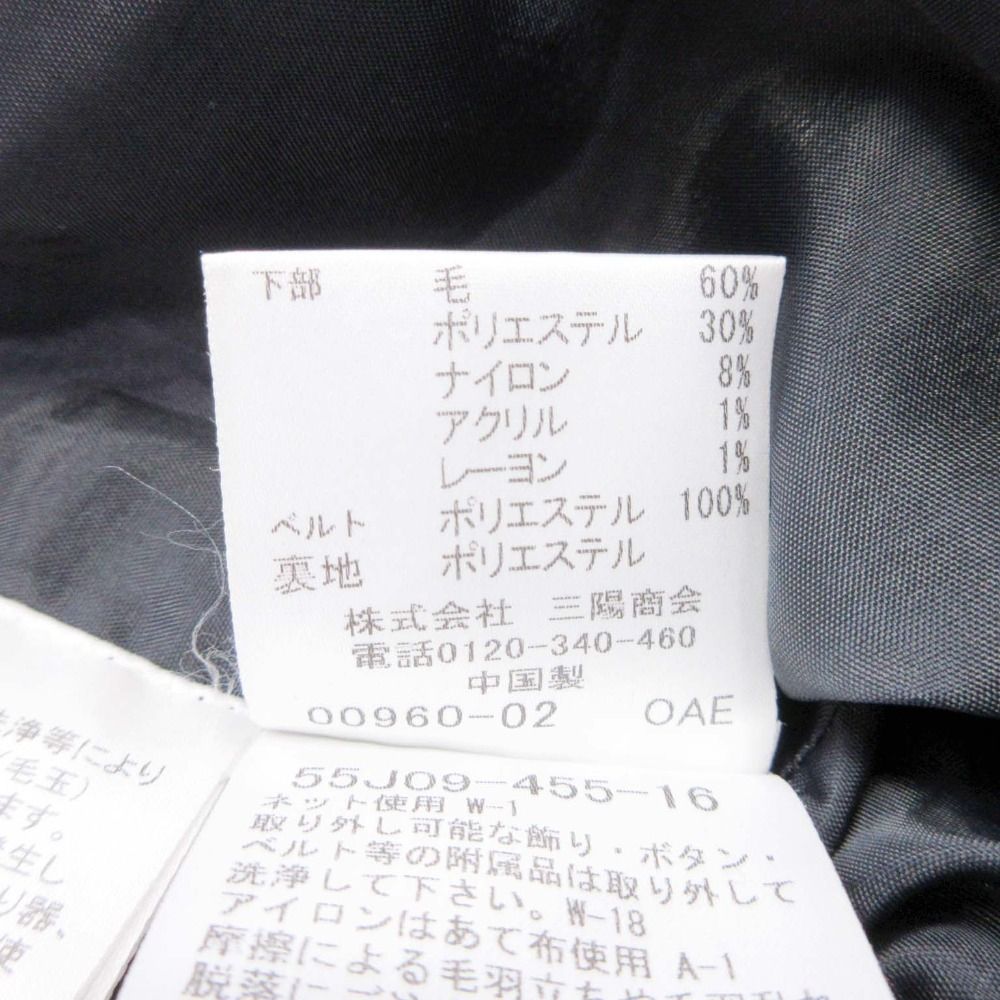 下部 毛 60%
ポリエステル 30%
ナイロン 8%
アクリル 1%
レーヨン 1%
ベルト ポリエステル 100%
裏地 ポリエステル
株式会社 三陽商会
電話0120-340-460
中国製
00960-02 OAE
55J09-455-16
ネット使用 W-1
取り外し可能な飾り・ボタン・
ベルト等の附属品は取り外して
洗浄して下さい。W-18
アイロンはあて布使用 A-1
摩擦による毛羽立ちや毛
洗浄等により
(毛玉)
ます。
生し
り器、
使